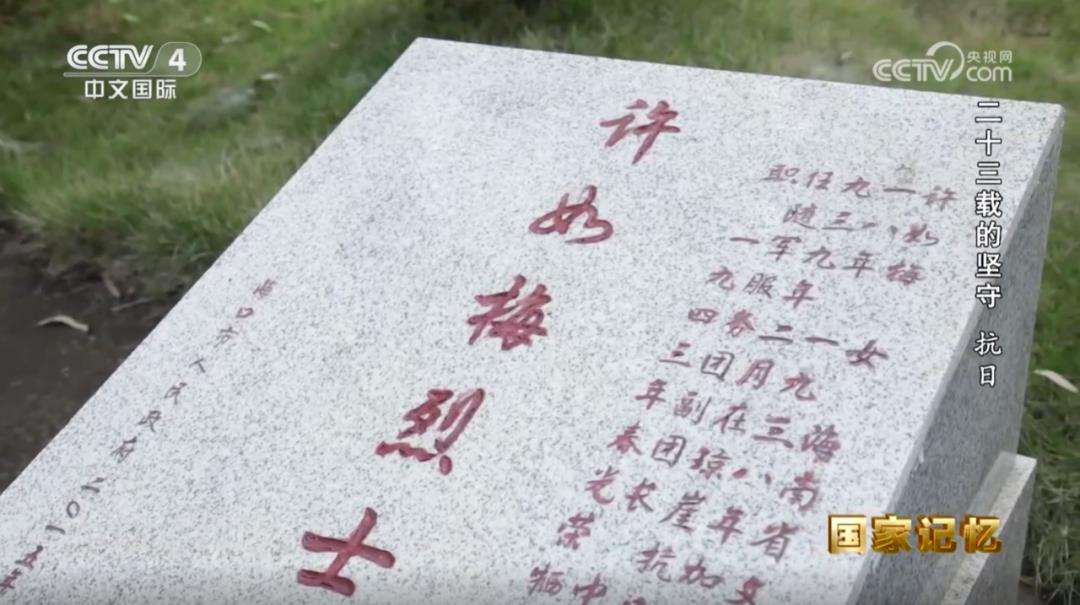 CCTV 4
中文国际
央视网
CCTV.com
二十三载的坚守 抗日
许如梅 女 海南省文
一八年 一九三八年加
九三九年二月在琼崖抗
任随军服务团副团长
职 一九四三年春光荣牺
许如梅烈士
海口市人民政府 二〇一五年
国家记忆